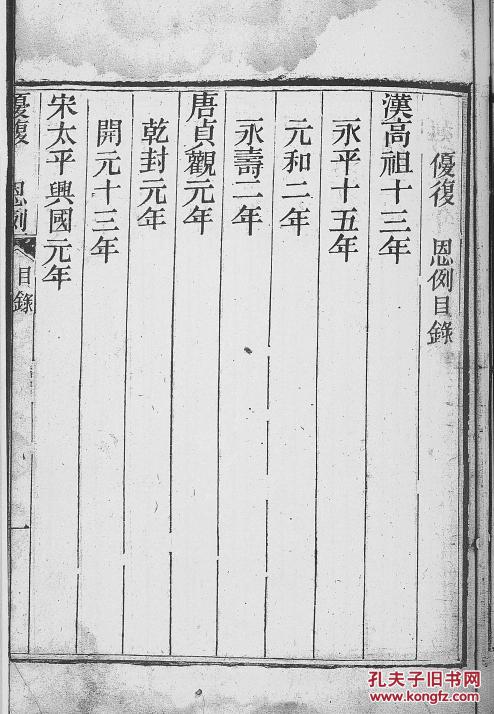 優復 恩例目錄
漢高祖十三年
永平十五年
元和二年
永壽二年
唐貞觀元年
乾封元年
開元十三年
宋太平興國元年
優復 恩例 目錄 一
孔夫子旧书网
www.kongfz.com